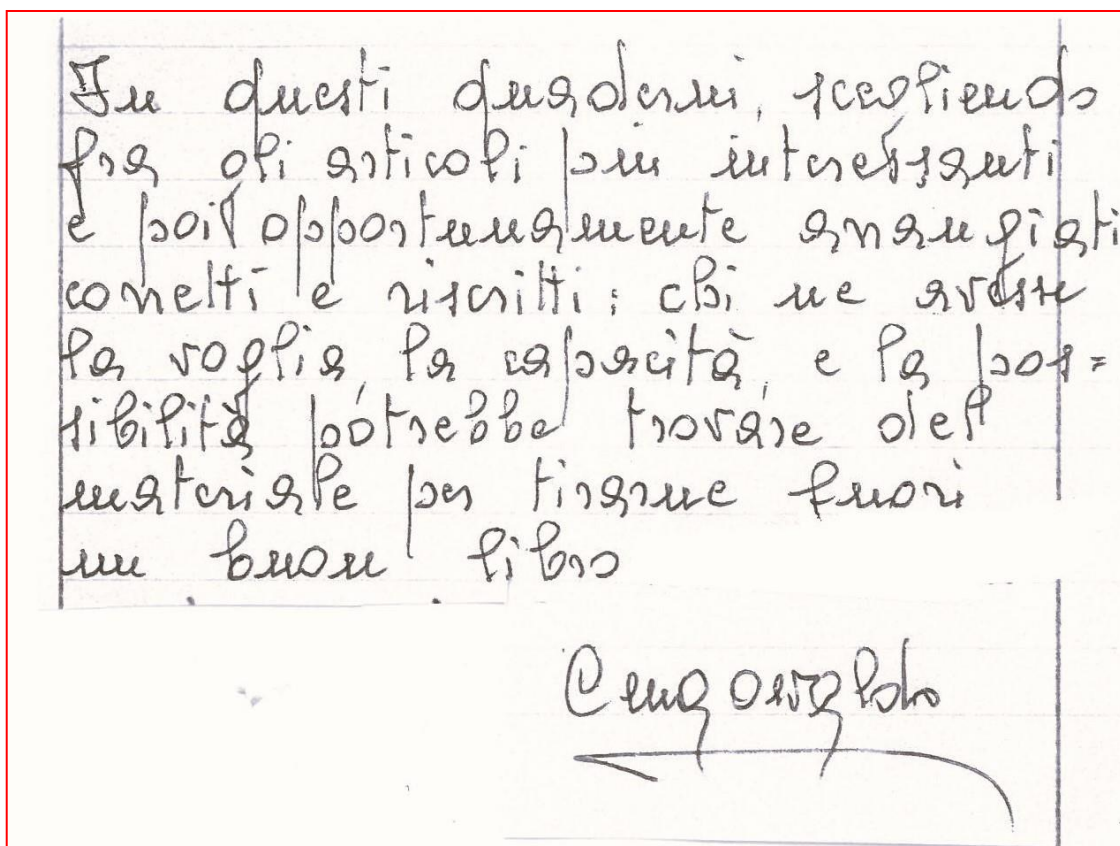 In questi quaderni, scegliendo
fra gli articoli più interessanti
e poi opportunamente arrangiati
corretti e riscritti; chi ne avesse
la voglia, la capacità, e la pos=
sibilità potrebbe trovare del
materiale per tirarne fuori
un buon libro
Osvaldo